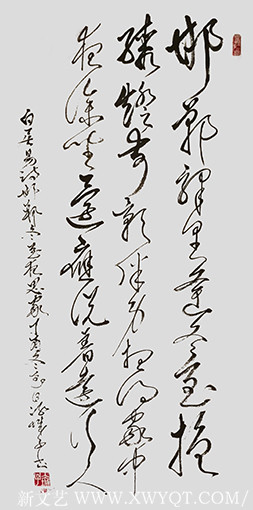 邯郸驿里逢冬至抱
膝灯前影伴身想得家中
夜深坐还应说着远行人
白居易诗邯郸冬至夜思家
新文艺 WWW.XWYQT.COM/